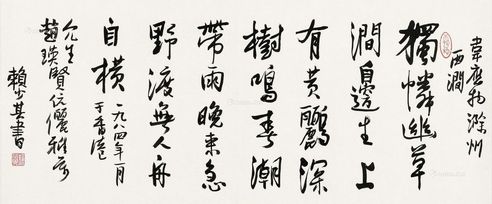 韋應物滁州
西澗
獨憐幽草
澗邊生上
有黃鸝深
樹鳴春潮
帶雨晚来急
野渡無人舟
自橫 一九八四年一月
于香港
允生
趙瑛賢伉儷雅屬
賴少其書